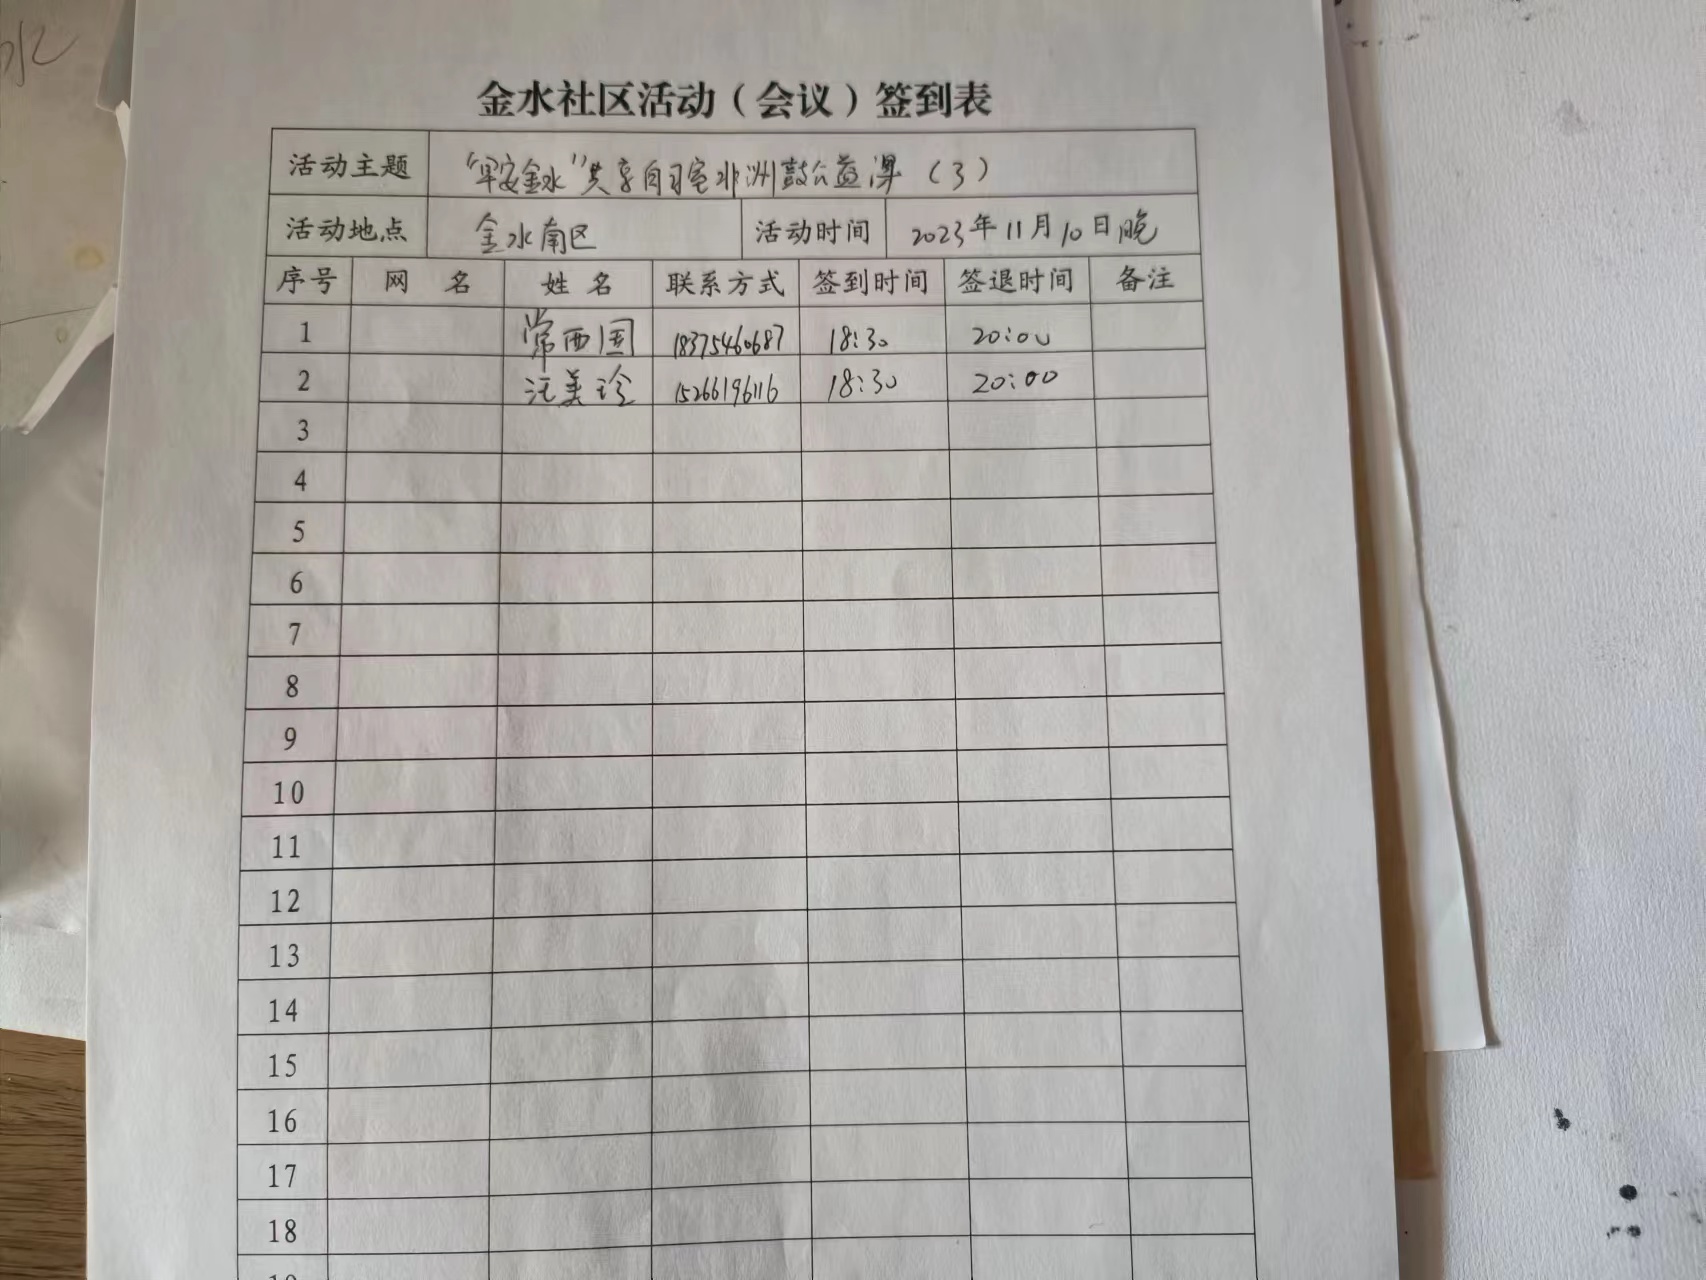 水
金水社区活动（会议）签到表
活动主题 “早安金水”共享自习室非洲鼓公益课（3）
活动地点 金水南区 活动时间 2023年11月10日晚
序号 网 名 姓 名 联系方式 签到时间 签退时间 备注
1 常西国 18375460687 18:30 20:00
2 汪美玲 15266196116 18:30 20:00
3
4
5
6
7
8
9
10
11
12
13
14
15
16
17
18
19